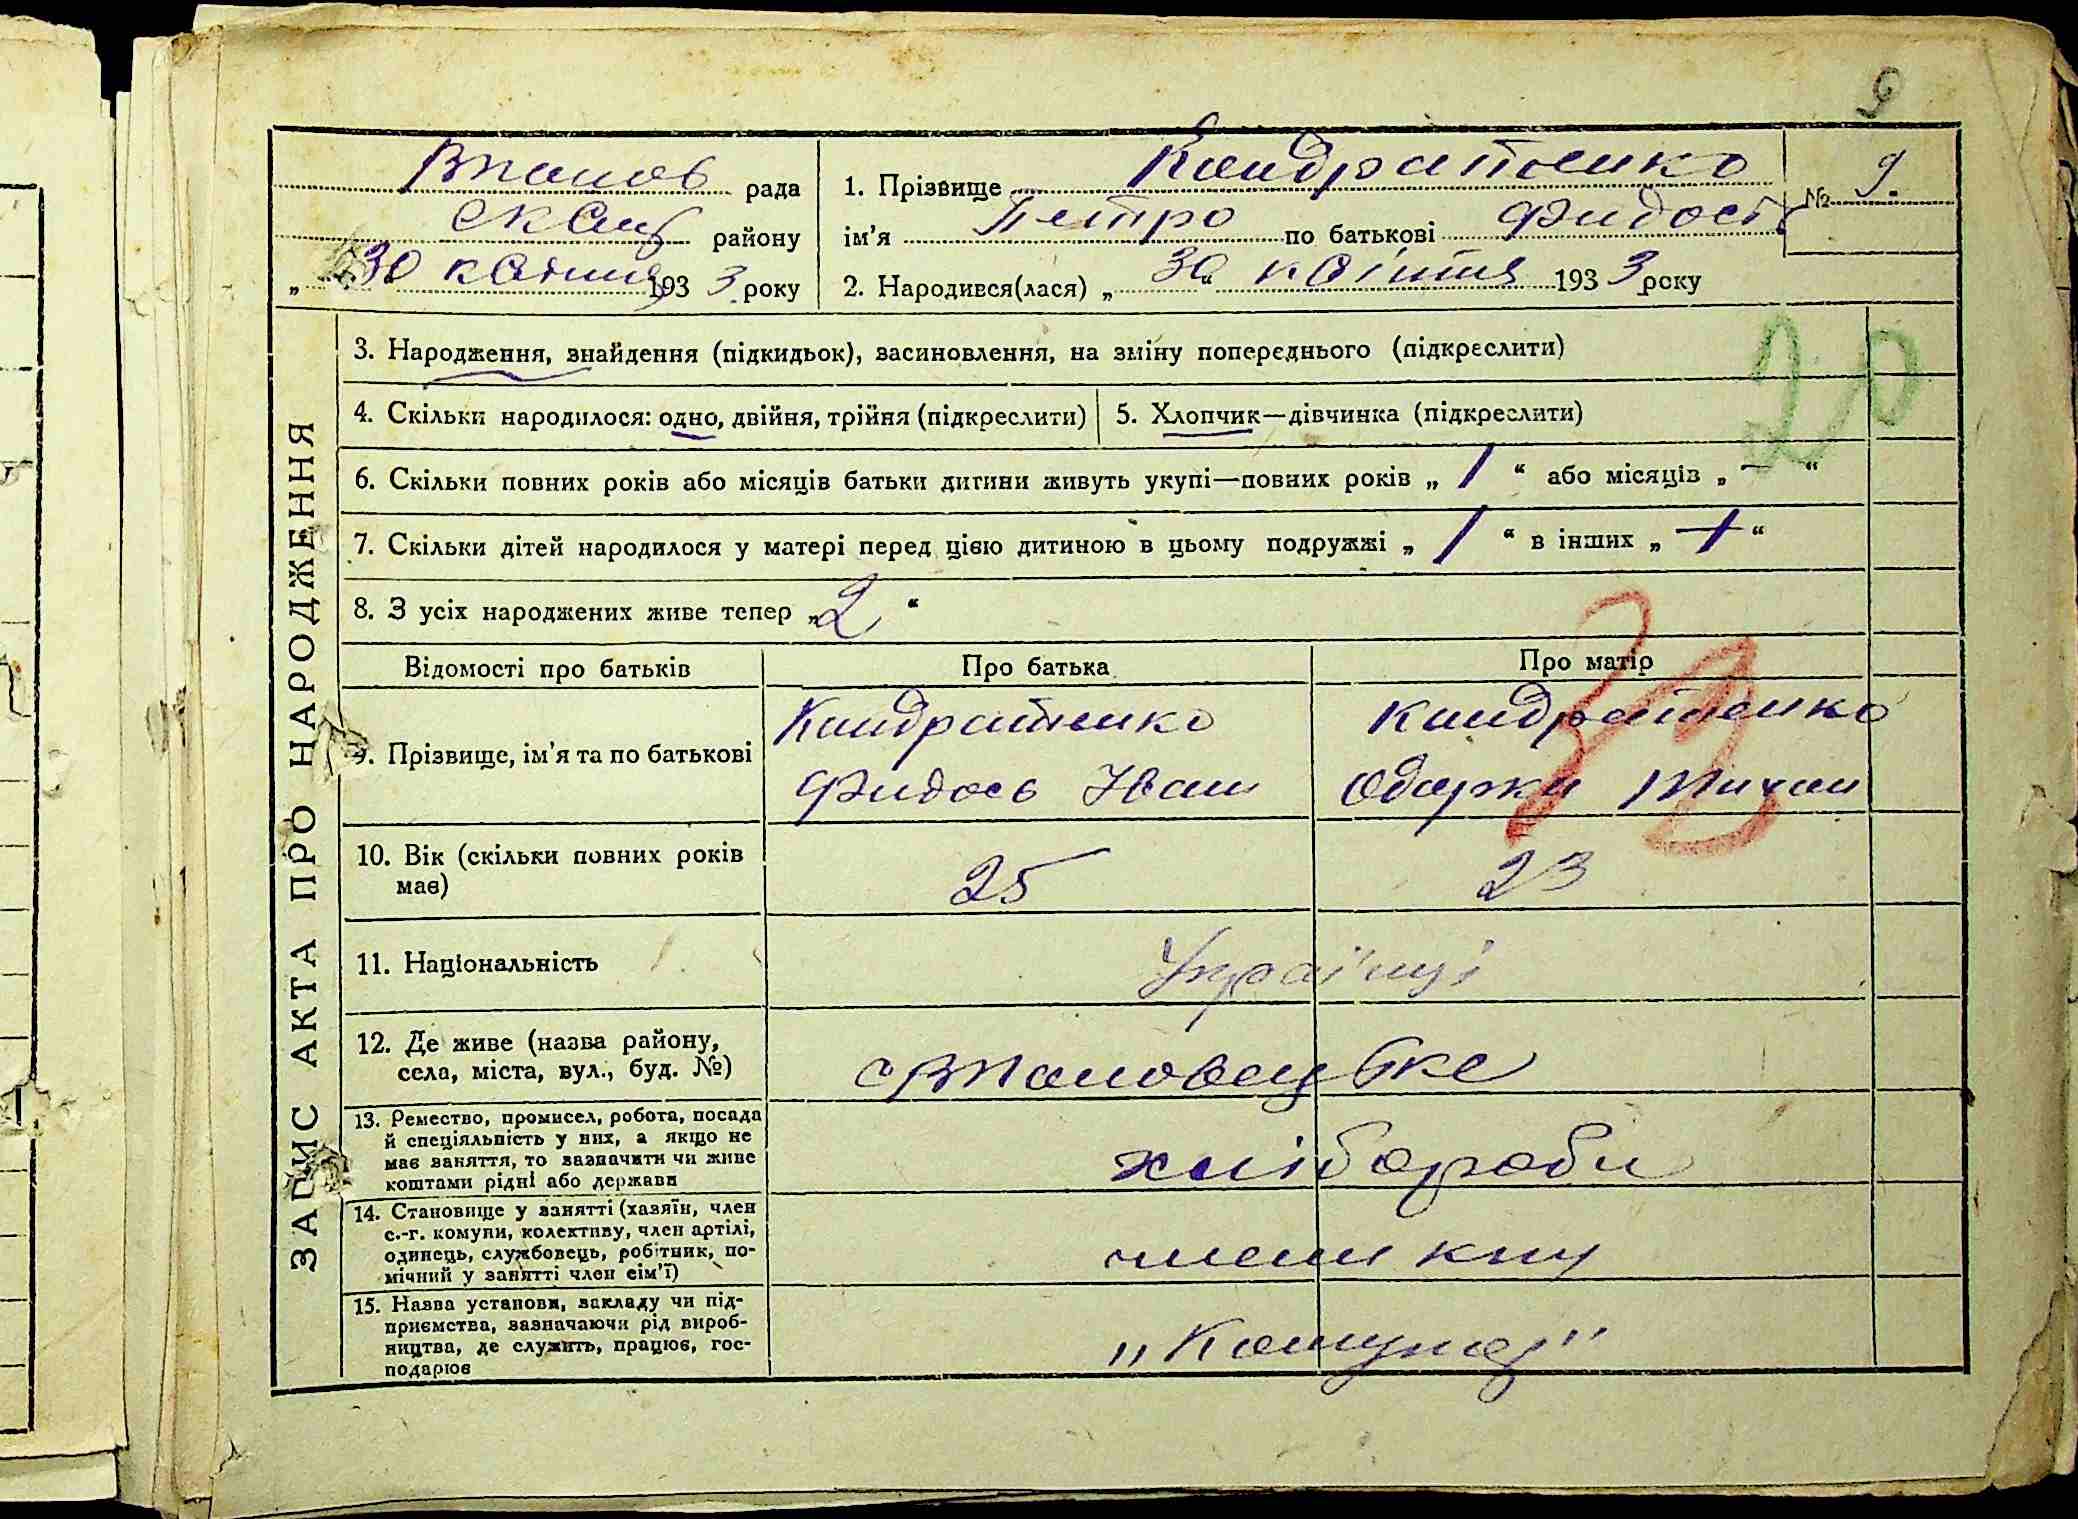 9
рада
1. Прізвище Кандратенко
№ 9.
району
ім'я Петро по батькові Фидось
„30 квітня 1933 року
2. Народився(лася) „30“ квітня 1933 року
ЗАПИС АКТА ПРО НАРОДЖЕННЯ
3. Народження, знайдення (підкидьок), засиновлення, на зміну попереднього (підкреслити)
20
4. Скільки народилося: одно, двійня, трійня (підкреслити)
5. Хлопчик—дівчинка (підкреслити)
6. Скільки повних років або місяців батьки дитини живуть укупі—повних років „1“ або місяців „—“
7. Скільки дітей народилося у матері перед цією дитиною в цьому подружжі „1“ в інших „+“
8. З усіх народжених живе тепер „2“
Відомості про батьків
Про батька
Про матір
9. Прізвище, ім'я та по батькові
Кандратенко
Фидось Іван
Кандратенко
Одарка Михай
10. Вік (скільки повних років
має)
25
23
11. Національність
Українці
12. Де живе (назва району,
села, міста, вул., буд. №)
13. Ремество, промисел, робота, посада
й спеціяльність у них, а якщо не
має заняття, то зазначити чи живе
коштами рідні або держави
хлібороби
14. Становище у занятті (хазяїн, член
с.-г. комуни, колективу, член артілі,
одинець, службовець, робітник, по-
мічний у занятті член сім'ї)
члени
15. Назва установи, закладу чи під-
приємства, зазначаючи рід вироб-
ництва, де служить, працює, гос-
подарює
"Комунар"